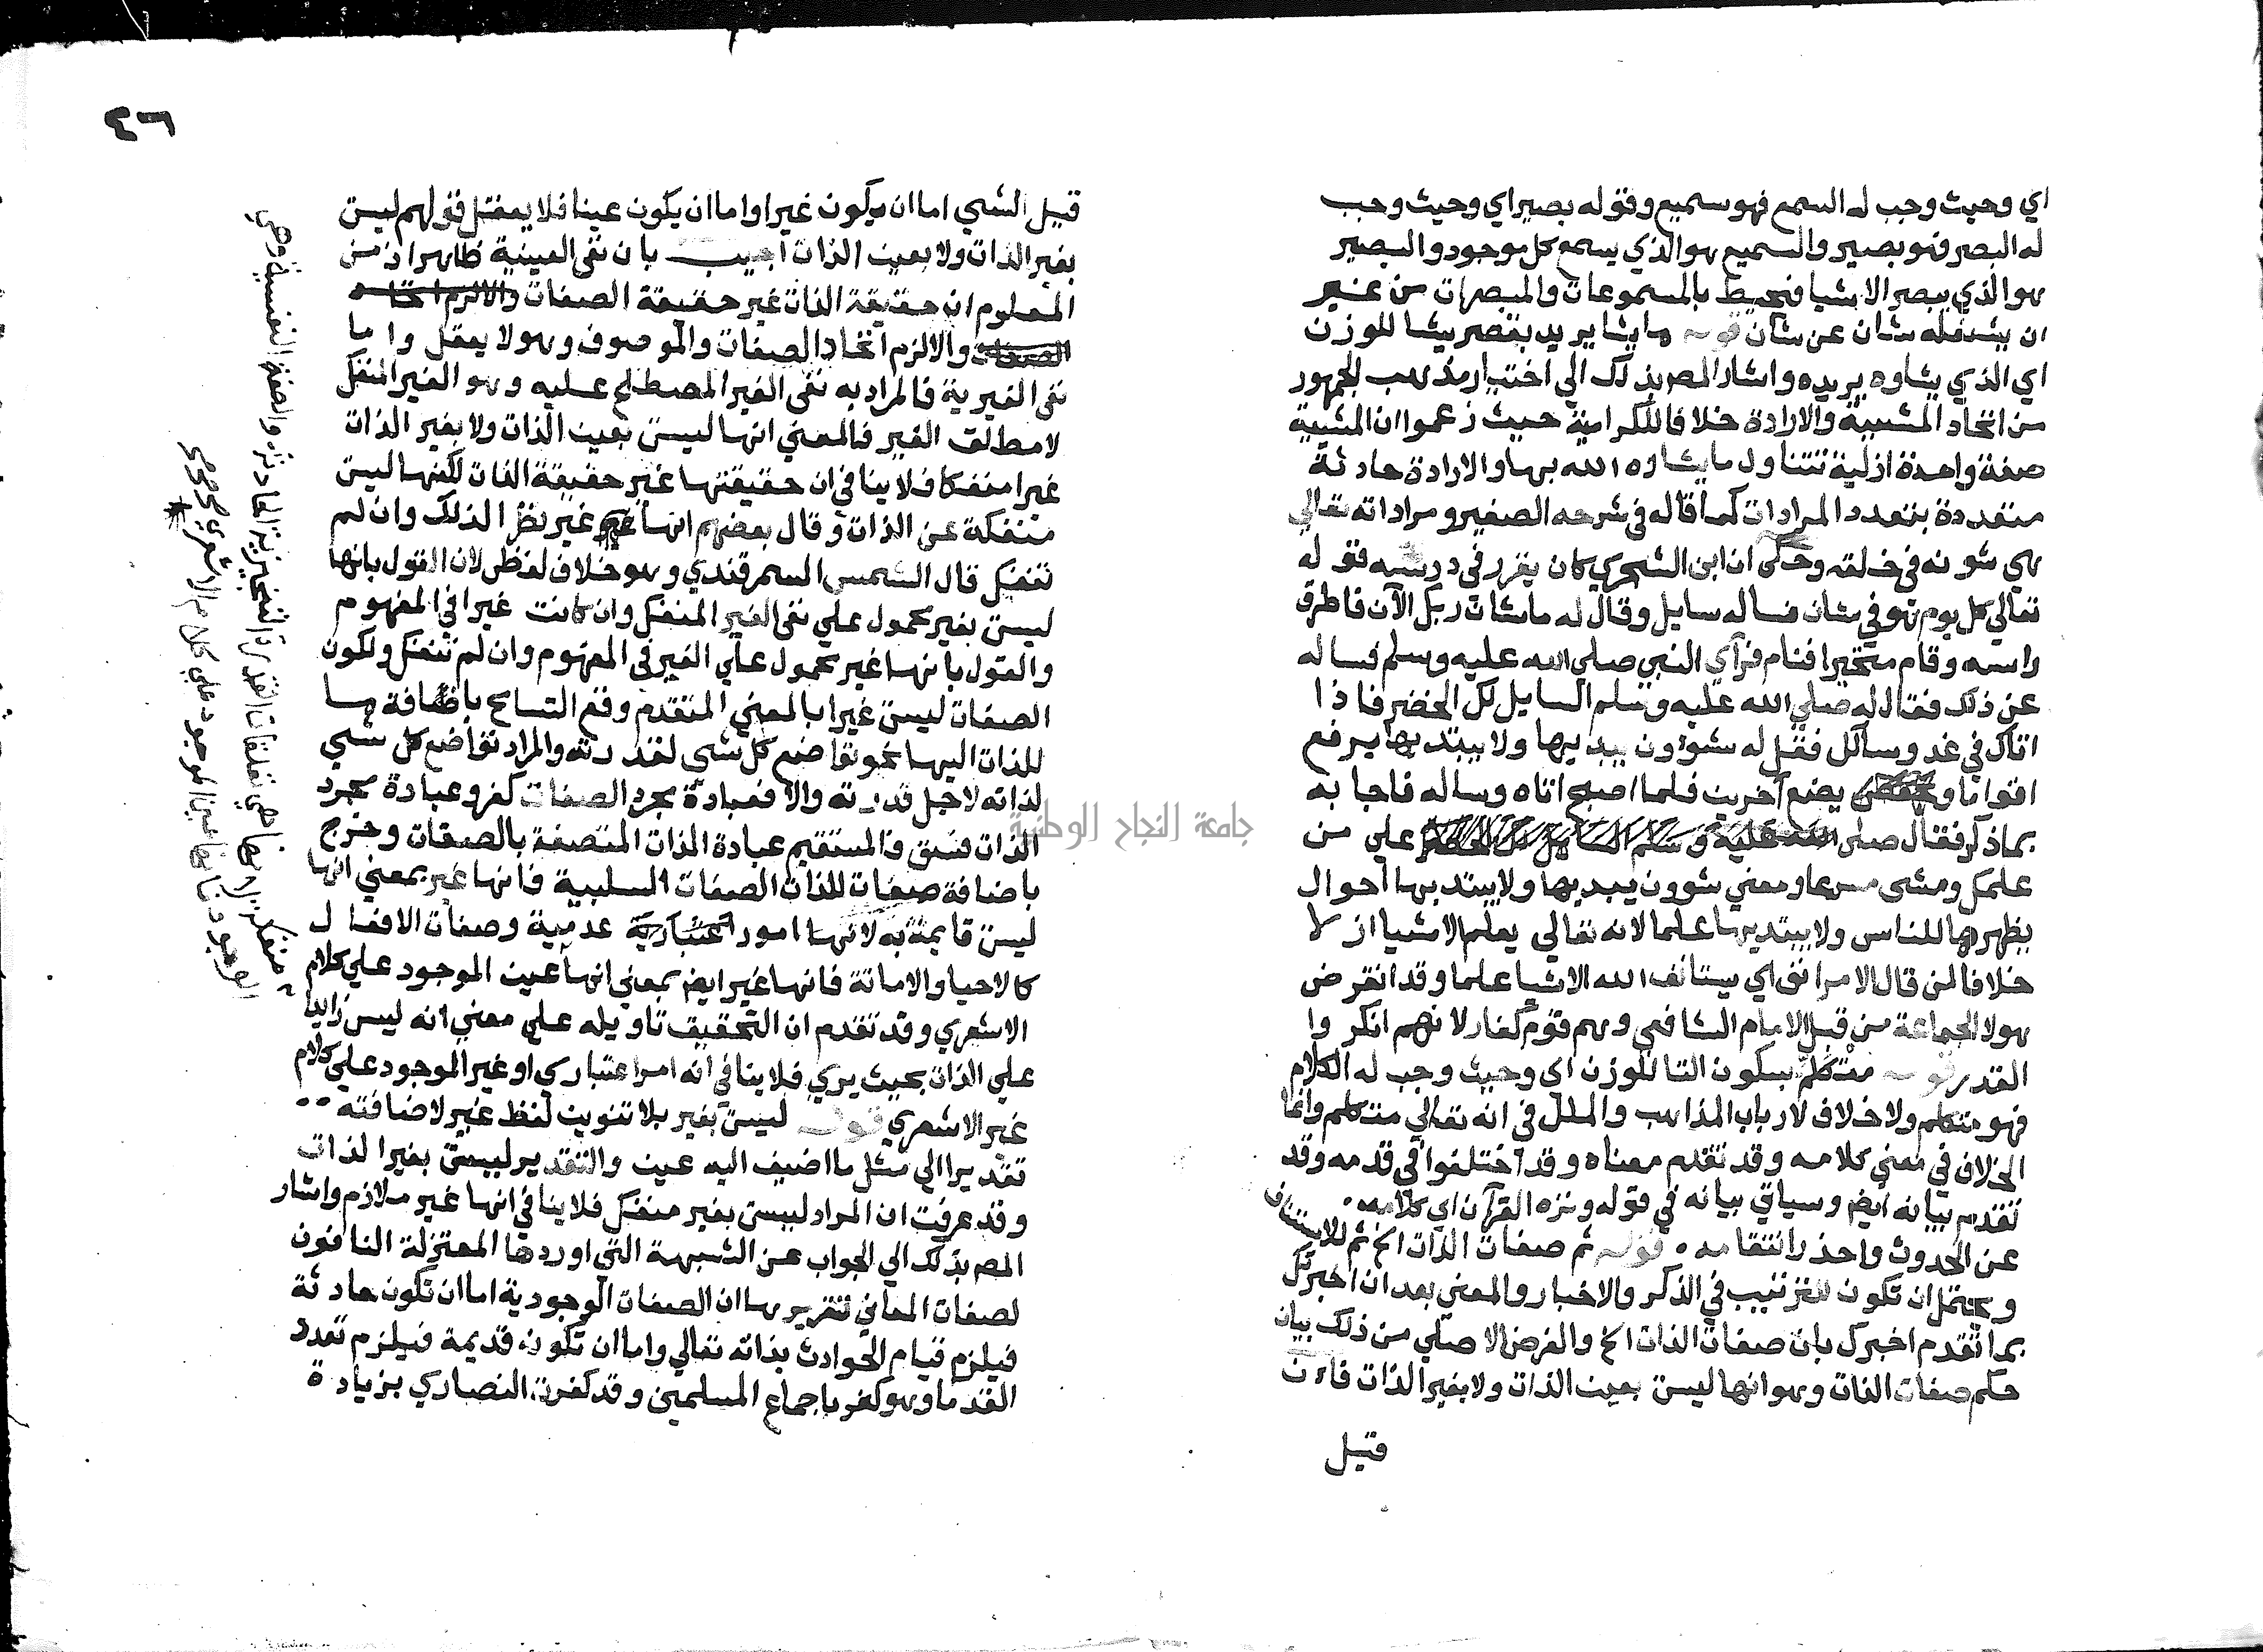 اي وحيث وجب له السمع فهو سميع وقوله بصير اي وحيث وجب
له البصر فهو بصير والسميع هو الذي يسمع كل موجود والبصير
هو الذي يبصر الاشيا فيحيط بالمسموعات والمبصرات من غير
ان يشغله شان عن شان قوله ما يشا يريد بقصر يشا للوزن
اي الذي يشاوه يريده واشار المصـ بذلك الي اختيار مذهب الجمهور
من اتحاد المشيية والارادة خلافا للكرامية حيث زعموا ان المشيية
صفة واحدة ازلية تتناول ما يشاوه الله بها والارادة حادثة
متعددة بتعدد المرادات كما قاله في شرحه الصغير ومراداته تعالي
هي شونه في خلقه وحكي ان ابن الشجري كان يقرر في درسه قوله
تعالي كل يوم هو في شان فساله سايل وقال له ما شان ربك الآن فاطرق
راسه وقام متحيرا فنام فرآي النبي صلي الله عليه وسلم فساله
عن ذلك فقال له صلي الله عليه وسلم السايل لك الخضر فاذا
اتاك في غد وسالك فقل له شؤون يبديها ولا يبتديها يرفع
اقواما و يضع آخرين فلما اصبح اتاه وساله فاجابه
بما ذكر فقال صلي علي من
علمك ومشي مسرعا ومعني شوون يبديها ولا يبتديها احوال
يظهرها للناس ولا يبتديها علما لانه تعالي يعلم الاشيا ازلا
خلافا لمن قال الامر انف اي يستانف الله الاشيا علما وقد انقرض
هولا الجماعة من قبل الامام الشافعي وهم قوم كفار لانهم انكروا
القدر قوله متكلم بسكون التا للوزن اي وحيث وجب له الكلام
فهو متكلم ولا خلاف لارباب المذاهب والملل في انه تعالي متكلم وانما
الخلاف في معني كلامه وقد تقدم معناه وقد اختلفوا في قدمه وقد
تقدم بيانه ايضـ وسياتي بيانه في قوله ونزه القرآن اي كلامه
عن الحدوث واحذر انتقامه قوله ثم صفات الذات الخ ثم للاستئناف
ويحتمل ان تكون للترتيب في الذكر والاخبار والمعني بعد ان اخبرتك
بما تقدم اخبرك بان صفات الذات الخ والغرض الاصلي من ذلك بيان
حكم صفات الذات وهو انها ليست بعين الذات ولا بغير الذات فان
قيل
٤٦
قيل الشي اما ان يكون غيرا واما ان يكون عينا فلا يعقل قولهم ليست
بغير الذات ولا بعين الذات اجيب بان نفي العينية ظاهر اذ من
المعلوم ان حقيقة الذات غير حقيقة الصفات والالزم اتحاد
الصفات والالزم اتحاد الصفات والموصوف وهو لا يعقل واما
نفي الغيرية فالمراد به نفي الغير المصطلح عليه وهو الغير المنفك
لا مطلق الغير فالمعني انها ليست بعين الذات ولا بغير الذات
غيرا منفكا فلا ينافي ان حقيقتها غير حقيقة الذات لكنها ليست
منفكة عن الذات وقال بعضهم انها غير نظرا لذلك وان لم
تنفك قال الشمس السمرقندي وهو خلاف لفظي لان القول بانها
ليست بغير محمول علي نفي الغير المنفك وان كانت غيرا في المفهوم
والقول بانها غير محمول علي الغير في المفهوم وان لم تنفك ولكون
الصفات ليست غيرا بالمعني المتقدم وقع التسامح باضافة ما
للذات اليها نحو تواضع كل شي لقدرته والمراد تواضع كل شي
لذاته لاجل قدرته والا فعبادة مجرد الصفات كفر وعبادة مجرد
الذات فسق فالمستقيم عبادة الذات المتصفة بالصفات وخرج
باضافة صفات للذات الصفات السلبية فانها غير بمعني انها
ليست قايمة به لانها امور اعتبارية عدمية وصفات الافعال
كالاحيا والاماتة فانها غير ايضـ بمعني انها عين الموجود علي كلام
الاشعري وقد تقدم ان التحقيق تاويله علي معني انه ليس زايدا
علي الذات بحيث يري فلا ينافي انه امر اعتباري او غير الموجود علي كلام
غير الاشعري قوله ليست بغير بلا تنوين لفظ غير لاضافته
تقديرا الي مثل ما اضيف اليه عين والتقدير ليست بغير الذات
وقد عرفت ان المراد ليست بغير منفك فلا ينافي انها غير ملازم واشار
المصـ بذلك الي الجواب عن الشبهة التي اوردها المعتزلة النافون
لصفات المعاني تقريرها ان الصفات الوجودية اما ان تكون حادثة
فيلزم قيام الحوادث بذاته تعالي واما ان تكون قديمة فيلزم تعدد
القدما وهو كفر باجماع المسلمين وقد كفرت النصاري بزيادة
جامعة النجاح الوطنية